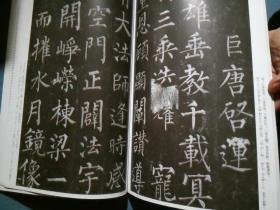 巨唐啓運
雄垂教千載冥
三乘迭耀寵
重恩顧顯闡讚導
大法師逢時感
空門正闢法宇
開崢嶸棟梁一
而摧水月鏡像